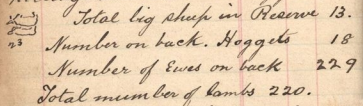 Total big sheep in Reserve 13.
23
Number on back. Hoggets 18
Number of Ewes on back 229
Total number of lambs 220.